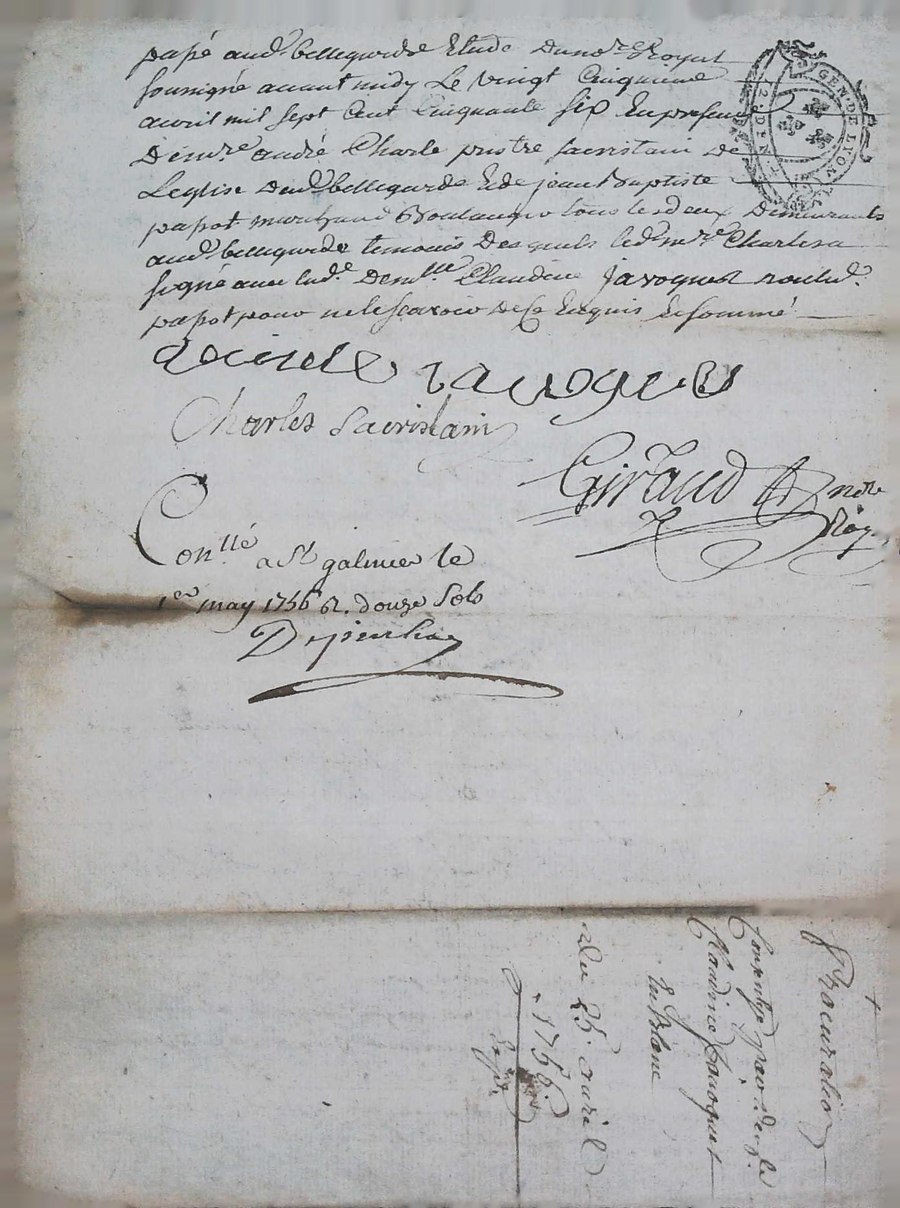 passé aud. bellegarde Etude du no.re Royal
soussigné avant midy Le vingt Cinquieme
avril mil sept Cent Cinquante six En presence
De m.re andré Charle prestre sacristain De
Leglise Dud. bellegarde Et de jean Baptiste
papot marchand Boulanger tous les deux Demeurants
aud. bellegarde temoins Desquels led. m.re Charles a
signé avec lad.e Dem.lle Claudine javoques non led.
papot pour ne le scavoir de Ce Enquis Et sommé
javogues
Charles Sacristain
Giraud no.re Roy.
Con.llé a St galmier le
1.er may 1756 R. douze Sols
GEN. DE LYON
2. S. DEN.
Procuration
Claudine javoques
En Blanc
Du 25.e avril
1756.